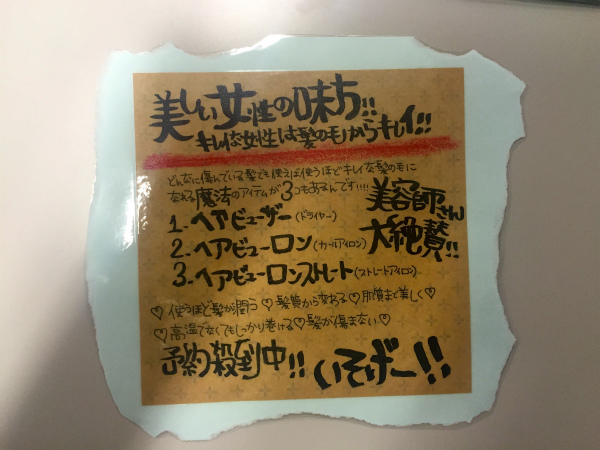 美しい女性の味方!!
キレイな女性は髪の毛からキレイ!!
どんなに傷んでいる髪でも使えば使うほどキレイな髪の毛に
なれる魔法のアイテムが3コもあるんです!!!!
美容師さん
大絶賛!!
1.ヘアビューザー(ドライヤー)
2.ヘアビューロン(カールアイロン)
3.ヘアビューロンストレート(ストレートアイロン)
♡使うほど髪が潤う♡髪質から変わる♡肌質まで美しく♡
♡高温でなくてもしっかり巻ける♡髪が傷まない♡
予約殺到中!! いそげー!!